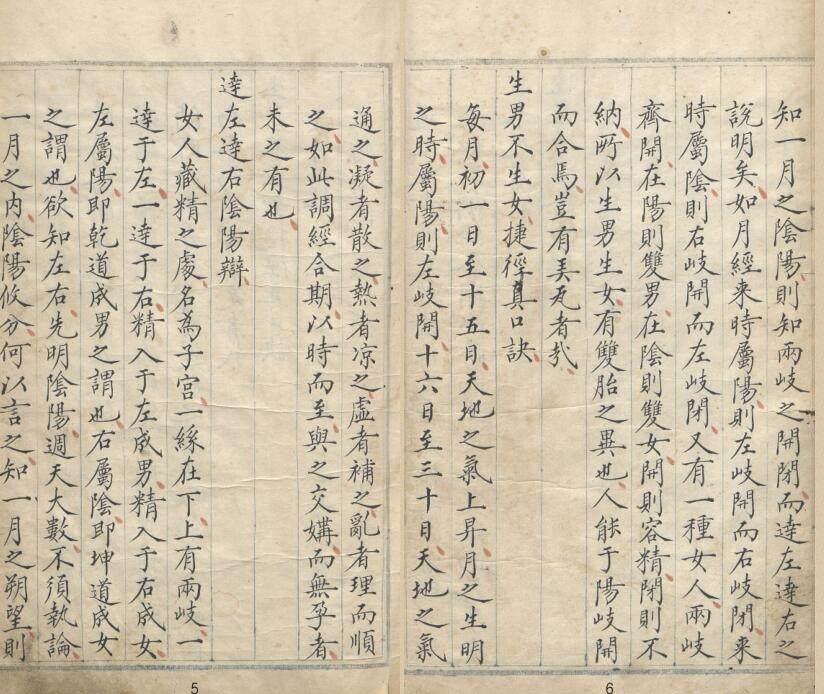 通之凝者散之熱者凉之虛者補之亂者理而順
之如此調經合期以時而至與之交媾而無孕者
未之有也
達左達右陰陽辯
女人藏精之處名爲子宮一絲在下上有兩岐一
達于左一達于右精入于左成男精入于右成女
左屬陽即乾道成男之謂也右屬陰即坤道成女
之謂也欲知左右先明陰陽週天大數不須執論
一月之內陰陽攸分何以言之知一月之朔望則
5
知一月之陰陽則知兩岐之開閉而達左達右之
說明矣如月經来時屬陽則左岐開而右岐閉来
時屬陰則右岐開而左岐閉又有一種女人兩岐
齊開在陽則雙男在陰則雙女開則容精閉則不
納所以生男生女有雙胎之異也人能于陽岐開
而合焉豈有弄瓦者哉
生男不生女捷徑真口訣
每月初一日至十五日天地之氣上昇月之生明
之時屬陽則左岐開十六日至三十日天地之氣
6